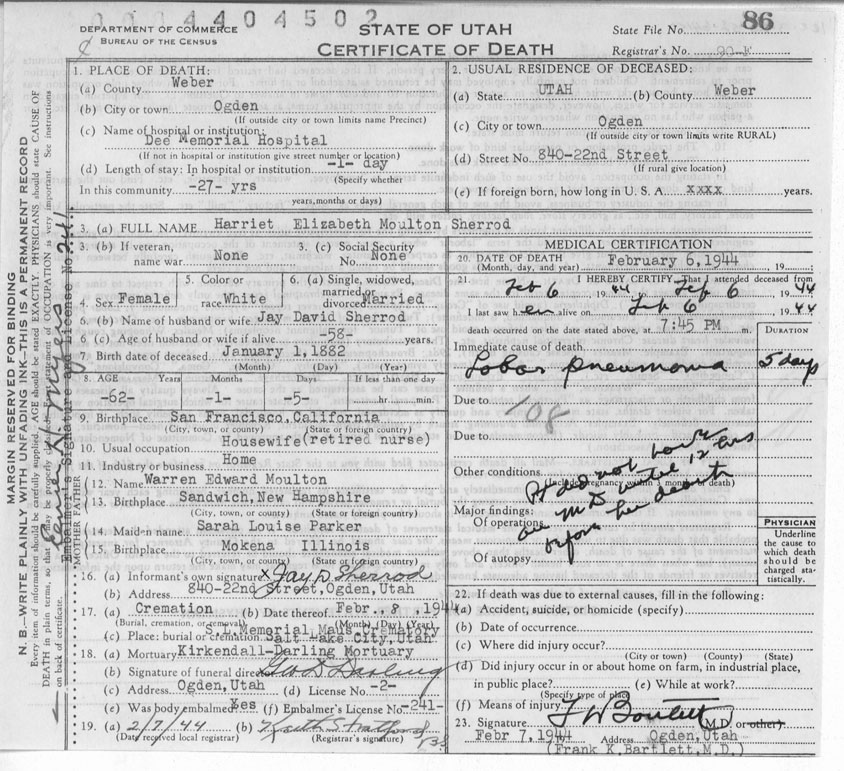 0004404502
86
DEPARTMENT OF COMMERCE
BUREAU OF THE CENSUS
STATE OF UTAH
CERTIFICATE OF DEATH
State File No.
Registrar's No. 90-
MARGIN RESERVED FOR BINDING
N. B.—WRITE PLAINLY WITH UNFADING INK—THIS IS A PERMANENT RECORD
Every item of information should be carefully supplied. AGE should be stated EXACTLY. PHYSICIANS should state CAUSE OF
DEATH in plain terms, so that it may be properly classified. Exact statement of OCCUPATION is very important. See instructions
on back of certificate.
Embalmer's Signature and License No. 241
1. PLACE OF DEATH:
(a) County Weber
(b) City or town Ogden
(If outside city or town limits name Precinct)
(c) Name of hospital or institution:
Dee Memorial Hospital
(If not in hospital or institution give street number or location)
(d) Length of stay: In hospital or institution -1- day
(Specify whether
In this community -27- yrs
years, months or days)
2. USUAL RESIDENCE OF DECEASED:
(a) State UTAH (b) County Weber
(c) City or town Ogden
(If outside city or town limits write RURAL)
(d) Street No. 840-22nd Street
(If rural give location)
(e) If foreign born, how long in U. S. A. xxxx years.
3. (a) FULL NAME Harriet Elizabeth Moulton Sherrod
3. (b) If veteran, name war None
3. (c) Social Security No. None
4. Sex Female
5. Color or race White
6. (a) Single, widowed, married, or divorced Married
6. (b) Name of husband or wife Jay David Sherrod
6 (c) Age of husband or wife if alive -58- years.
7. Birth date of deceased January 1,1882
(Month) (Day) (Year)
8. AGE Years Months Days If less than one day
-62- -1- -5- hr. min.
9. Birthplace San Francisco,California
(City, town, or county) (State or foreign country)
10. Usual occupation Housewife(retired nurse)
11. Industry or business Home
FATHER
12. Name Warren Edward Moulton
13. Birthplace Sandwich,New Hampshire
(City, town, or county) (State or foreign country)
MOTHER
14. Maiden name Sarah Louise Parker
15. Birthplace Mokena Illinois
(City, town, or county) (State or foreign country)
16. (a) Informant's own signature x Jay D Sherrod
(b) Address 840-22nd Street,Ogden,Utah
17. (a) Cremation (b) Date thereof Febr.,8,1944
(Burial, cremation, or removal) (Month) (Day) (Year)
S.L.Memorial Maus.Crematory
(c) Place: burial or cremation Salt Lake City,Utah
18. (a) Mortuary Kirkendall-Darling Mortuary
(b) Signature of funeral director Geo D Darling
(c) Address Ogden,Utah (d) License No. -2-
(e) Was body embalmed Yes (f) Embalmer's License No. -241-
19. (a) 2/7/44 (b)
(Date received local registrar) (Registrar's signature)
MEDICAL CERTIFICATION
20. DATE OF DEATH February 6,1944, 19
(Month, day, and year)
21. I HEREBY CERTIFY That I attended deceased from
Feb 6, 1944 to Feb 6, 1944
I last saw her alive on Feb 6 1944
death occurred on the date stated above, at 7:45 PM m.
DURATION
Immediate cause of death
Lobar pneumonia 5 days
Due to 108
Due to
Other conditions
(Include pregnancy within 3 months of death)
Pt did not have
an MD until 12 hrs
before her death
Major findings:
Of operations
Of autopsy
PHYSICIAN
Underline
the cause to
which death
should be
charged sta-
tistically.
22. If death was due to external causes, fill in the following:
(a) Accident, suicide, or homicide (specify)
(b) Date of occurrence
(c) Where did injury occur?
(City or town) (County) (State)
(d) Did injury occur in or about home on farm, in industrial place,
in public place? (e) While at work?
(Specify type of place)
(f) Means of injury
23. Signature F K Bartlett M.D. or other)
Febr 7,1944 Address Ogden,Utah
(Frank K.Bartlett,M.D.)